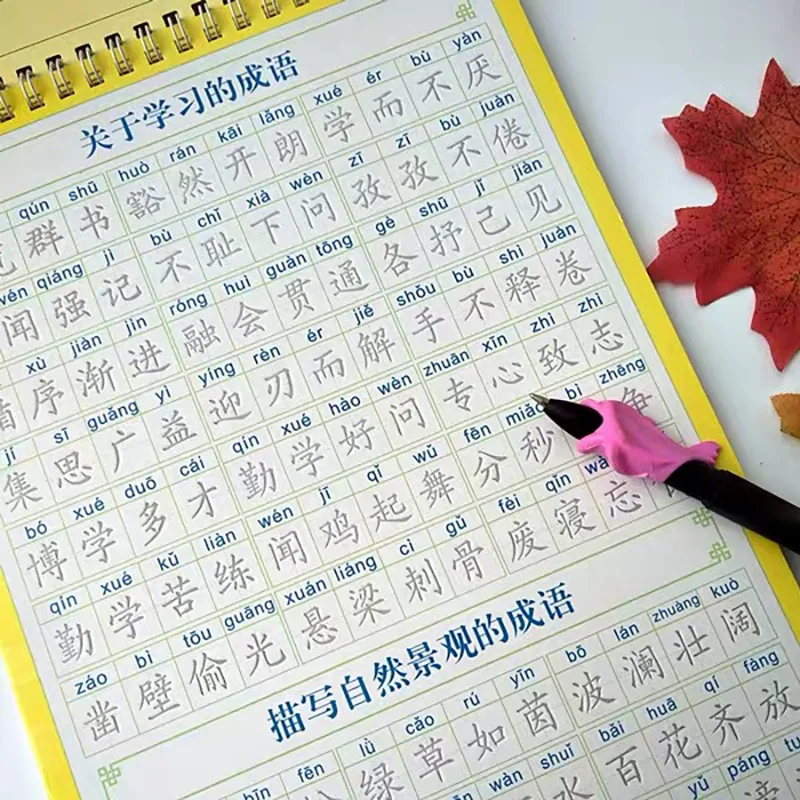 关于学习的成语
qún shū huò rán kāi lǎng xué ér bù yàn
群书 豁然开朗 学而不厌
wén qiáng jì bù chǐ xià wèn zī zī bù juàn
闻强记 不耻下问 孜孜不倦
xù jiàn jìn róng huì guàn tōng gè shū jǐ jiàn
序渐进 融会贯通 各抒己见
jí sī guǎng yì yíng rèn ér jiě shǒu bù shì juàn
集思广益 迎刃而解 手不释卷
bó xué duō cái qín xué hào wèn zhuān xīn zhì zhì
博学多才 勤学好问 专心致志
qín xué kǔ liàn wén jī qǐ wǔ fēn miǎo bì zhēng
勤学苦练 闻鸡起舞 分秒 争
záo bì tōu guāng xuán liáng cì gǔ fèi qǐn
凿壁偷光 悬梁刺骨 废寝忘
描写自然景观的成语
bīn fēn lǜ cǎo rú yīn bō lán zhuàng kuò
绿草如茵 波澜壮阔
wàn shuǐ bǎi huā qí fàng
水 百花齐放
yǔ pāng